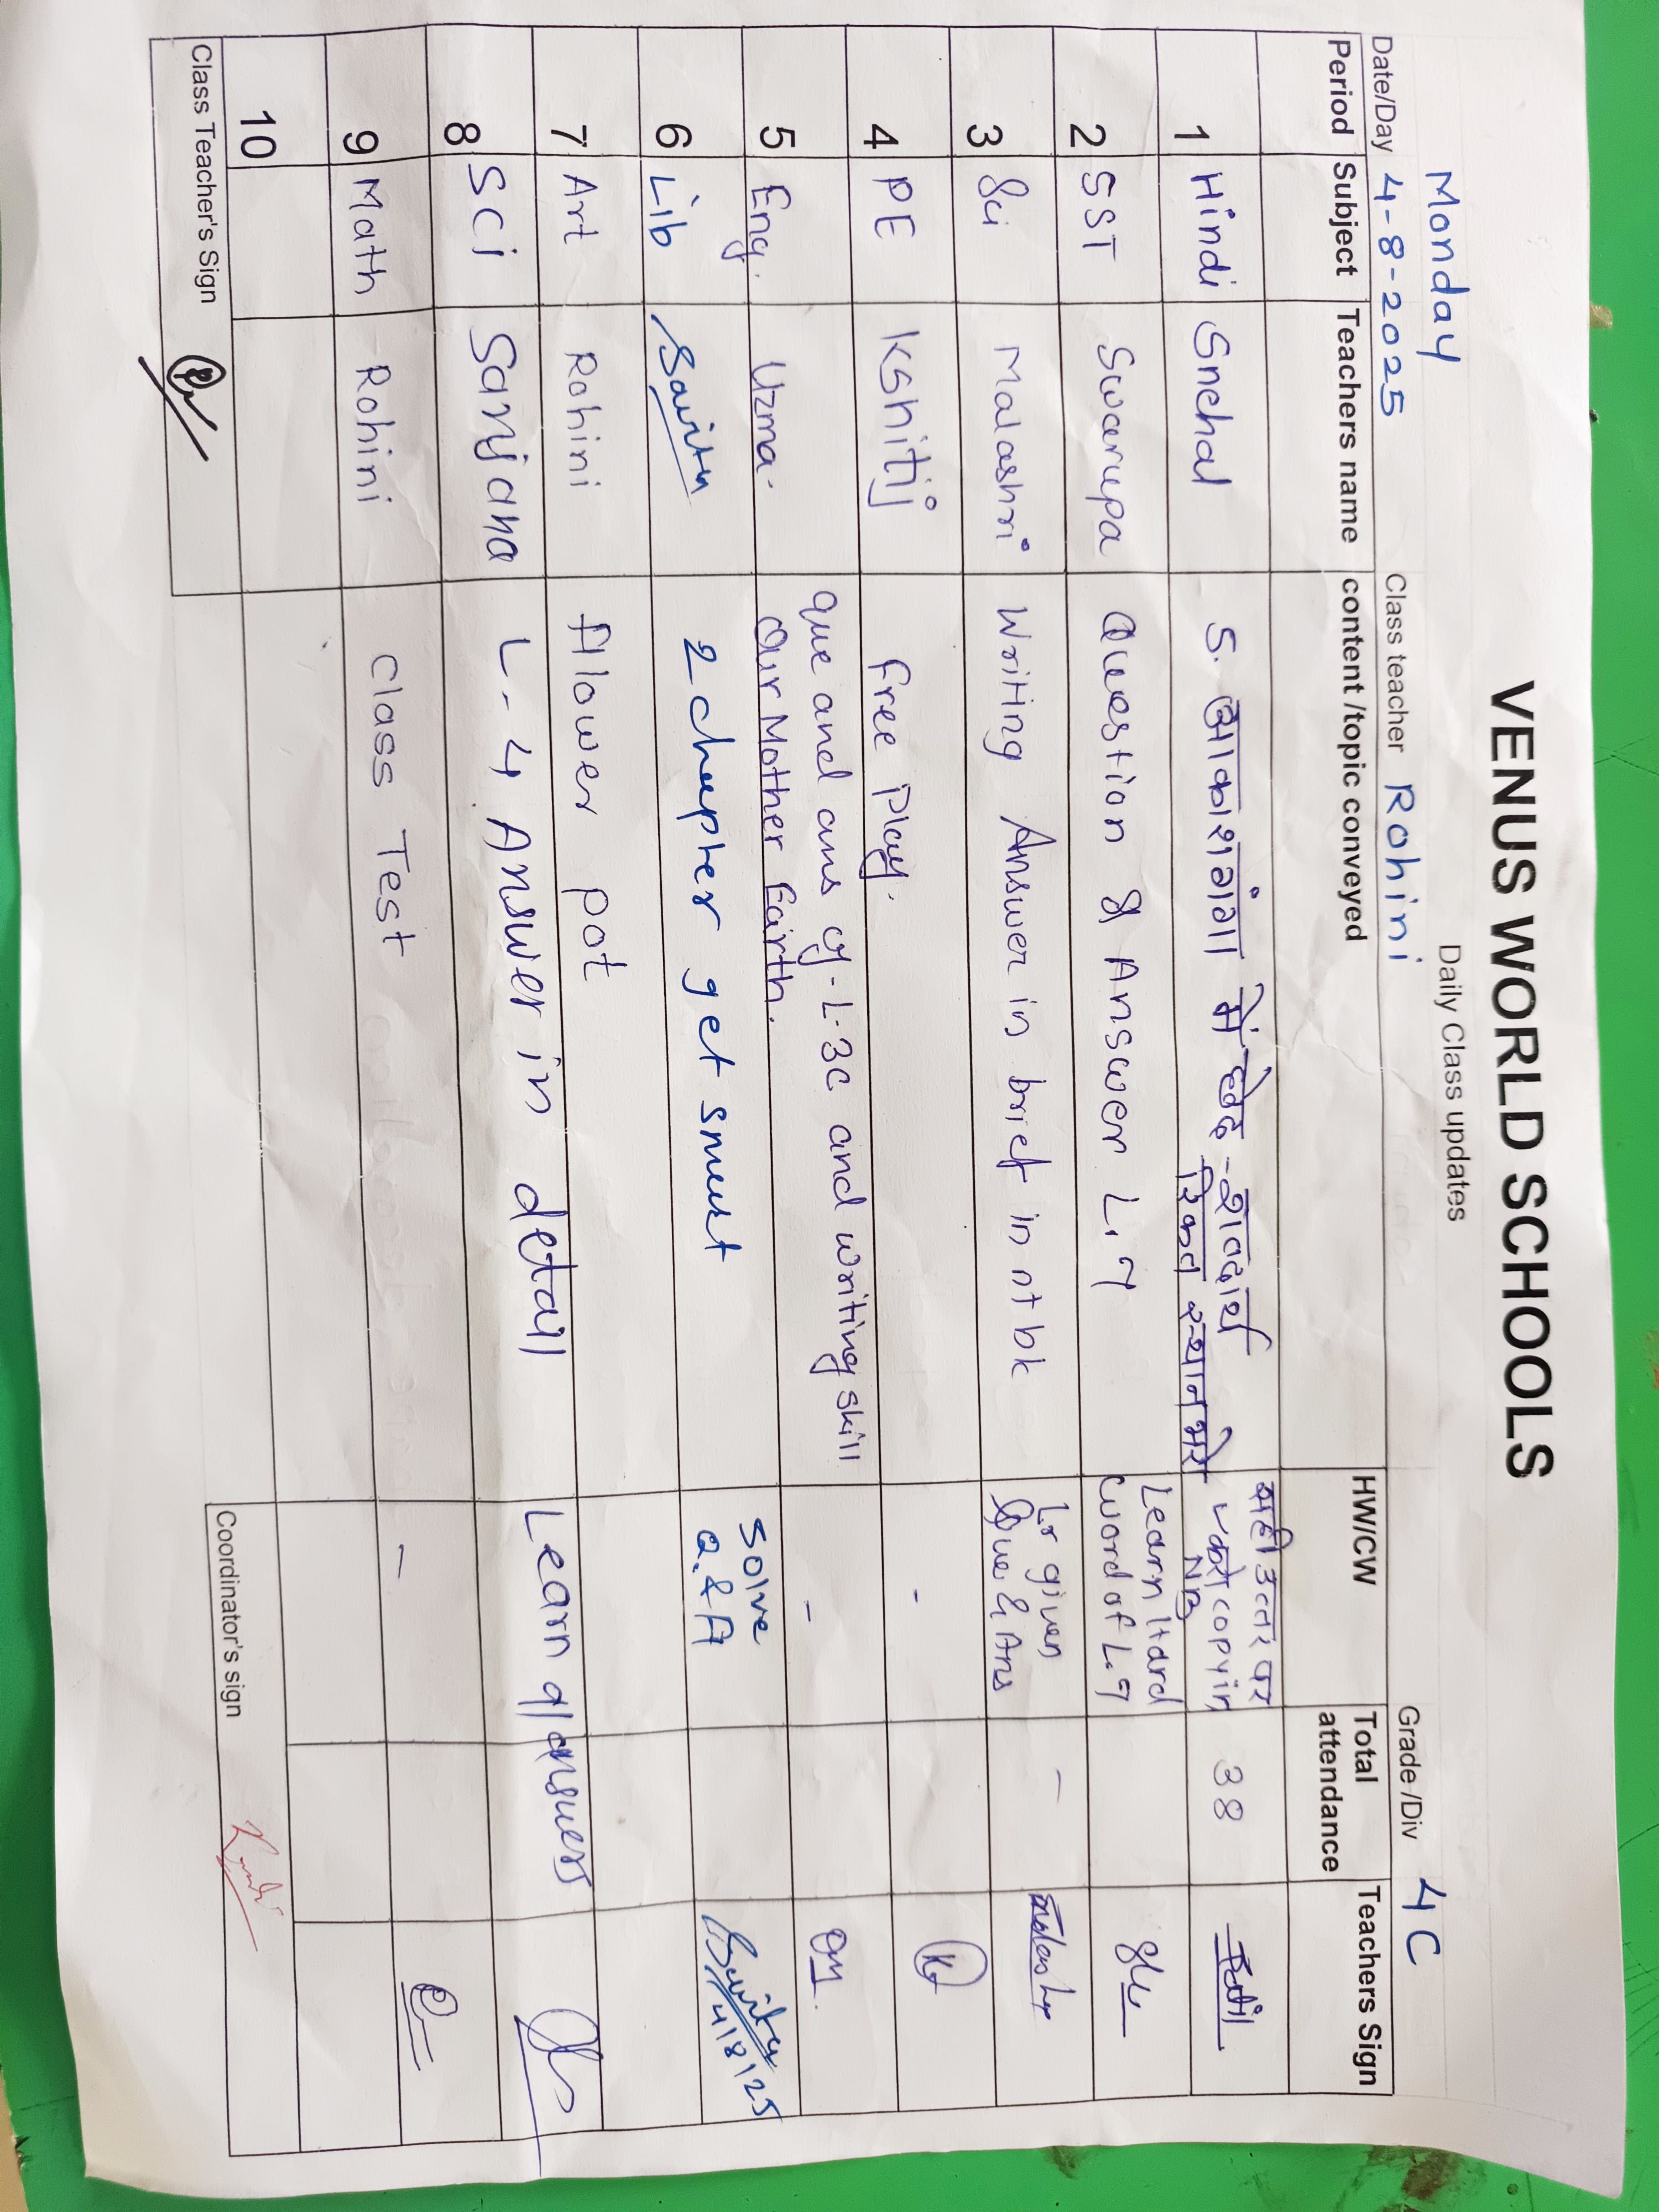 VENUS WORLD SCHOOLS
Daily Class updates
Monday
Date/Day 4-8-2025 Class teacher Rohini Grade /Div 4C
Period Subject Teachers name content /topic conveyed HW/CW Total attendance Teachers Sign
1 Hindi Snehal 5. आकाशगंगा में छेद - शब्दार्थ रिक्त स्थान भरे सही उत्तर पर copy in NB 38
2 SST Swarupa Question & Answer L.7 Learn Hard word of L.7
3 Sci Malashri Writing Answer in brief in nt bk Lr given Que & Ans -
4 PE Kshitij free Play. -
5 Eng. Uzma. que and ans of - L-3c and writing skill
Our Mother Earth. -
6 Lib Savita 2 chepter get smart solve Q.&A 4/8/25
7 Art Rohini fllower pot
8 SCI Sanjana L-4 Answer in detail Learn q/answers
9 Math Rohini Class Test -
10
Class Teacher's Sign Coordinator's sign